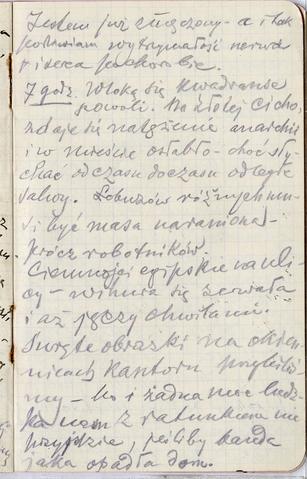 Jestem już zmęczony - a i tak
podziwiam wytrzymałość nerwów
i serca po chorobie.
7 godz. Wloką się kwadranse
powoli. Na ulicy cicho,
zdaje się natężenie anarchii
i w mieście osłabło - choć sły-
chać od czasu do czasu odległe
salwy. Łobuzów różnych mu-
si być masa naraniona -
prócz robotników.
Ciemności egipskie na uli-
cy - wichura się zerwała
i aż jęczy chwilami.
Święte obrazki na okien-
nicach Kantoru przylepiliś-
my - bo i żadna moc ludz-
ka nam z ratunkiem nie
przyjdzie, jeśliby banda
jaka opadła dom.